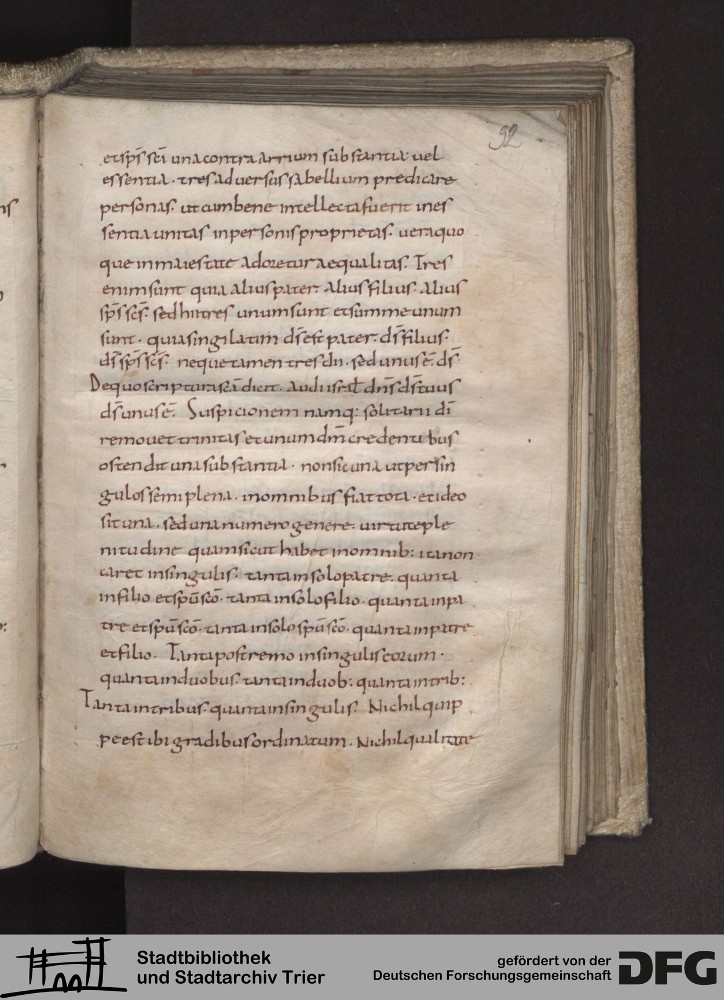 92
et sp̄s sc̄i una contra arrium substantia uel
essentia . tres adversus sabellium predicare
personas . ut cum bene intellecta fuerit in es
sentia unitas in personis proprietas . utraquo
que in maiestate adoretur aequalitas . Tres
enim sunt quia alius pater . alius filius . alius
sp̄s sc̄s . sed hi tres unum sunt et summe unum
sunt . quia singilatim dsͤ est pater . ds̄ filius .
ds̄ sp̄s sc̄s . neque tamen tres dii . sed unus ē ds̄
De quo scriptura sc̄a dicit . audi isrl̄ dn̄s ds̄ tuus
ds̄ unus ē . Suspicionem namq: solitarii dī
remouet trinitas et unum dm̄ credentibus
ostendit una substantia . non sic una ut per sin
gulos semiplena . in omnibus fiat tota . et ideo
sit una . sed una numero genere . uirtute ple
nitudine quam sicut habet in omnib: ita non
caret in singulis . tanta in solo patre . quanta
in filio et spū scō . tanta in solo filio . quanta in pa
tre et spū scō . tanta in solo spū scō . quanta in patre
et filio . Tanta postremo in singulis eorum .
quanta in duobus . tanta in duob: quanta in trib:
Tanta in tribus . quanta in singulis . Nichil quip
pe est ibi gradibus ordinatum . Nichil qualitate
Stadtbibliothek
und Stadtarchiv Trier
gefördert von der
Deutschen Forschungsgemeinschaft
DFG